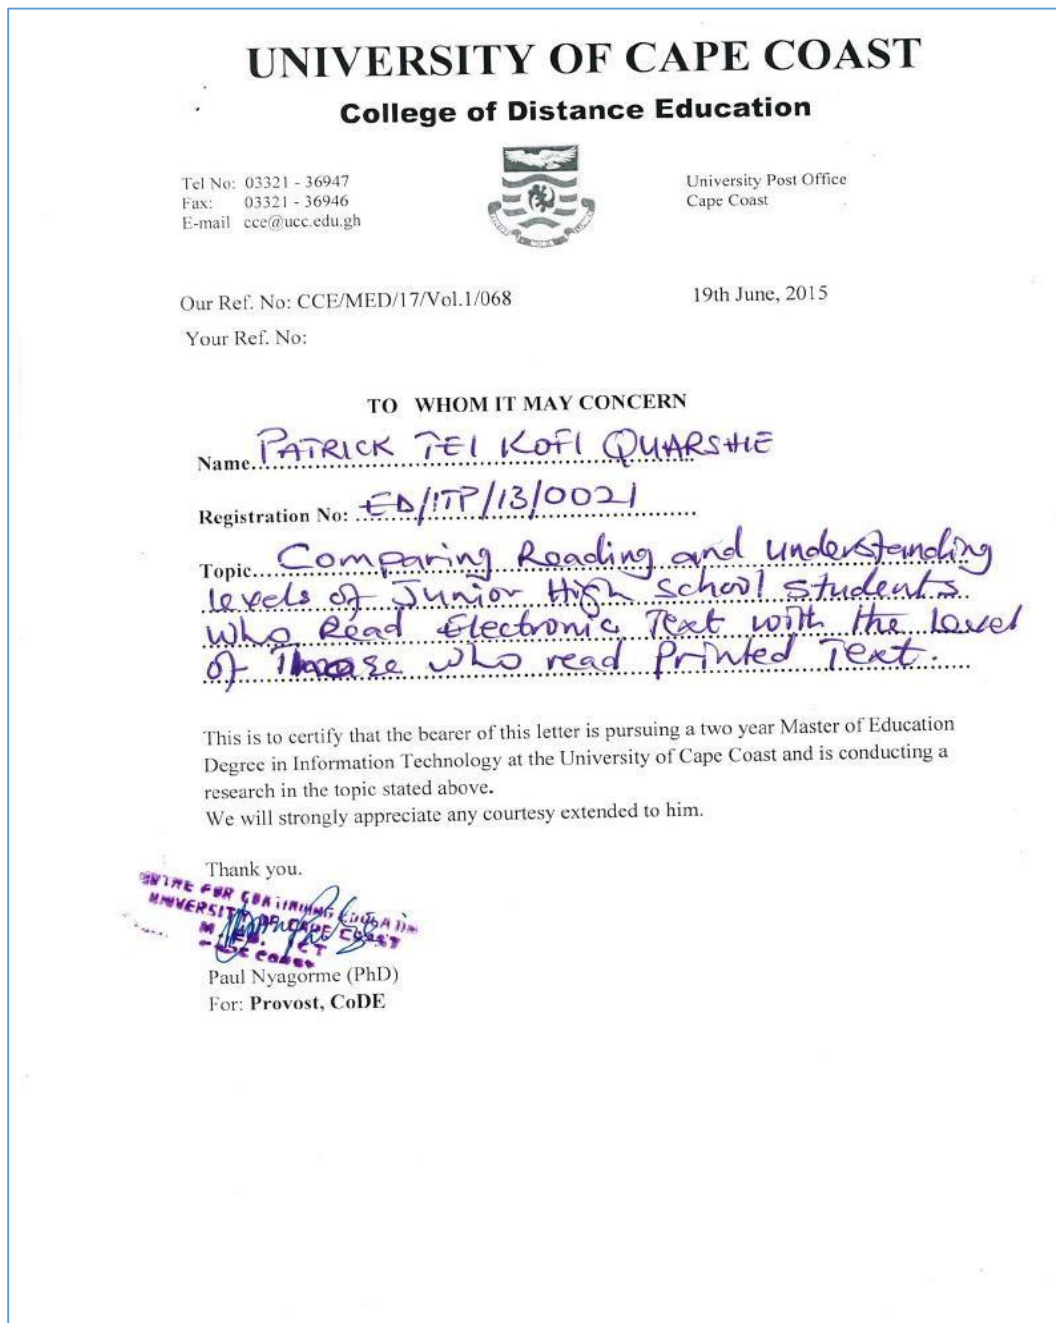 UNIVERSITY OF CAPE COAST
College of Distance Education
Tel No: 03321 - 36947
Fax: 03321 - 36946
E-mail cce@ucc.edu.gh
University Post Office
Cape Coast
Our Ref. No: CCE/MED/17/Vol.1/068
19th June, 2015
Your Ref. No:
TO WHOM IT MAY CONCERN
Name. PATRICK TEI KOFI QUARSHIE
Registration No: ED/ITP/13/0021
Topic. Comparing Reading and understanding
levels of Junior High School students
who Read Electronic Text with the level
of Those who read Printed Text.
This is to certify that the bearer of this letter is pursuing a two year Master of Education
Degree in Information Technology at the University of Cape Coast and is conducting a
research in the topic stated above.
We will strongly appreciate any courtesy extended to him.
Thank you.
CENTRE FOR CONTINUING EDUCATION
UNIVERSITY OF CAPE COAST
CAPE COAST
Paul Nyagorme (PhD)
For: Provost, CoDE